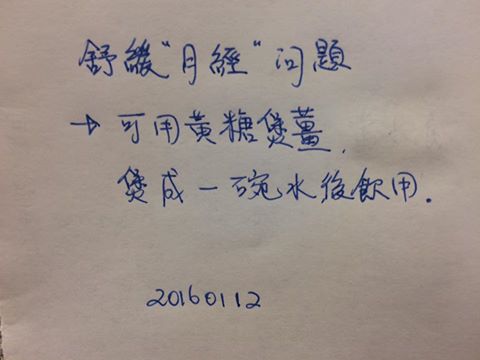 舒緩"月經"问題
→ 可用黃糖煲薑,
煲成一碗水後飲用.
20160112